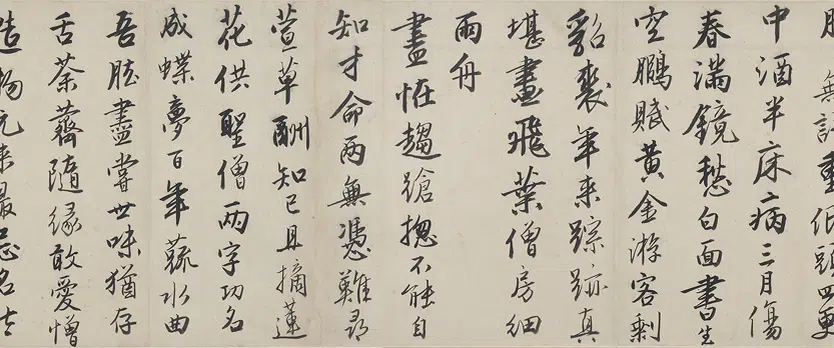 無計重低頭四更
中酒半床病三月傷
春滿鏡愁白面書生
空鵬賦黄金游客剩
貂裘年来踪跡真
堪畫飛葉僧房細
雨舟
盡恠趨蹌揔不能自
知才命兩無憑難尋
萱草酬知己且摘蓮
花供聖僧兩字功名
成蝶夢百年蔬水曲
吾肱盡嘗世味猶存
舌荼薺隨緣敢愛憎
造物元来最忌名